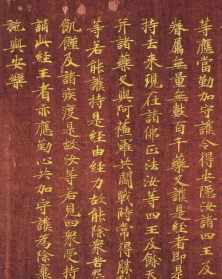 等應當勤加守護令得安隱汝諸四王及
眷屬無量無數百千藥叉護是經者即
持去來現在諸佛正法汝等四王及餘
并諸藥叉與阿蘇羅共鬪戰時常得勝
等若能護持是經由經力故能除眾苦
飢饉及諸疾疫是故汝等若見四眾受持
誦此經王者亦應勤心共加守護為除
施與安樂